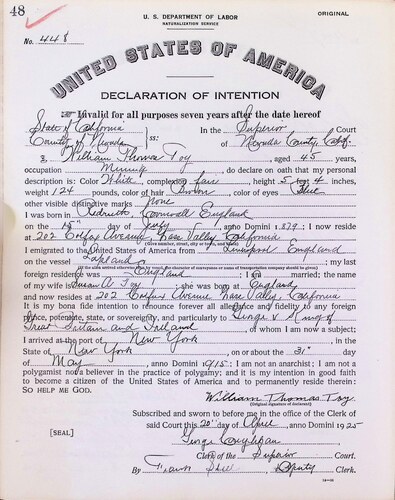 48
U. S. DEPARTMENT OF LABOR
NATURALIZATION SERVICE
ORIGINAL
No. 448
UNITED STATES OF AMERICA
DECLARATION OF INTENTION
Invalid for all purposes seven years after the date hereof
State of California
In the Superior Court
County of Nevada ss: of Nevada County, Calif.
I, William Thomas Toy, aged 45 years,
occupation Mining, do declare on oath that my personal
description is: Color White, complexion fair, height 5 feet 4 inches,
weight 124 pounds, color of hair Brown, color of eyes Blue
other visible distinctive marks None
I was born in Redruth, Cornwall England
on the 15" day of July, anno Domini 1879; I now reside
at 202 Colfax Avenue, Grass Valley California
(Give number, street, city or town, and State)
I emigrated to the United States of America from Liverpool England
on the vessel Lapland; my last
(If the alien arrived otherwise than by vessel, the character of conveyance or name of transportation company should be given)
foreign residence was England; I am married; the name
of my wife is Susan A Toy; she was born at England
and now resides at 202 Colfax Avenue Grass Valley, California
It is my bona fide intention to renounce forever all allegiance and fidelity to any foreign
prince, potentate, state, or sovereignty, and particularly to George V King of
Great Britain and Ireland, of whom I am now a subject;
I arrived at the port of New York, in the
State of New York, on or about the 31" day
of May, anno Domini 1915; I am not an anarchist; I am not a
polygamist nor a believer in the practice of polygamy; and it is my intention in good faith
to become a citizen of the United States of America and to permanently reside therein:
SO HELP ME GOD.
William Thomas Toy
(Original signature of declarant)
Subscribed and sworn to before me in the office of the Clerk of
said Court this 20" day of April, anno Domini 1925
[SEAL]
George Coughlan
Clerk of the Superior Court.
By Deputy Clerk.